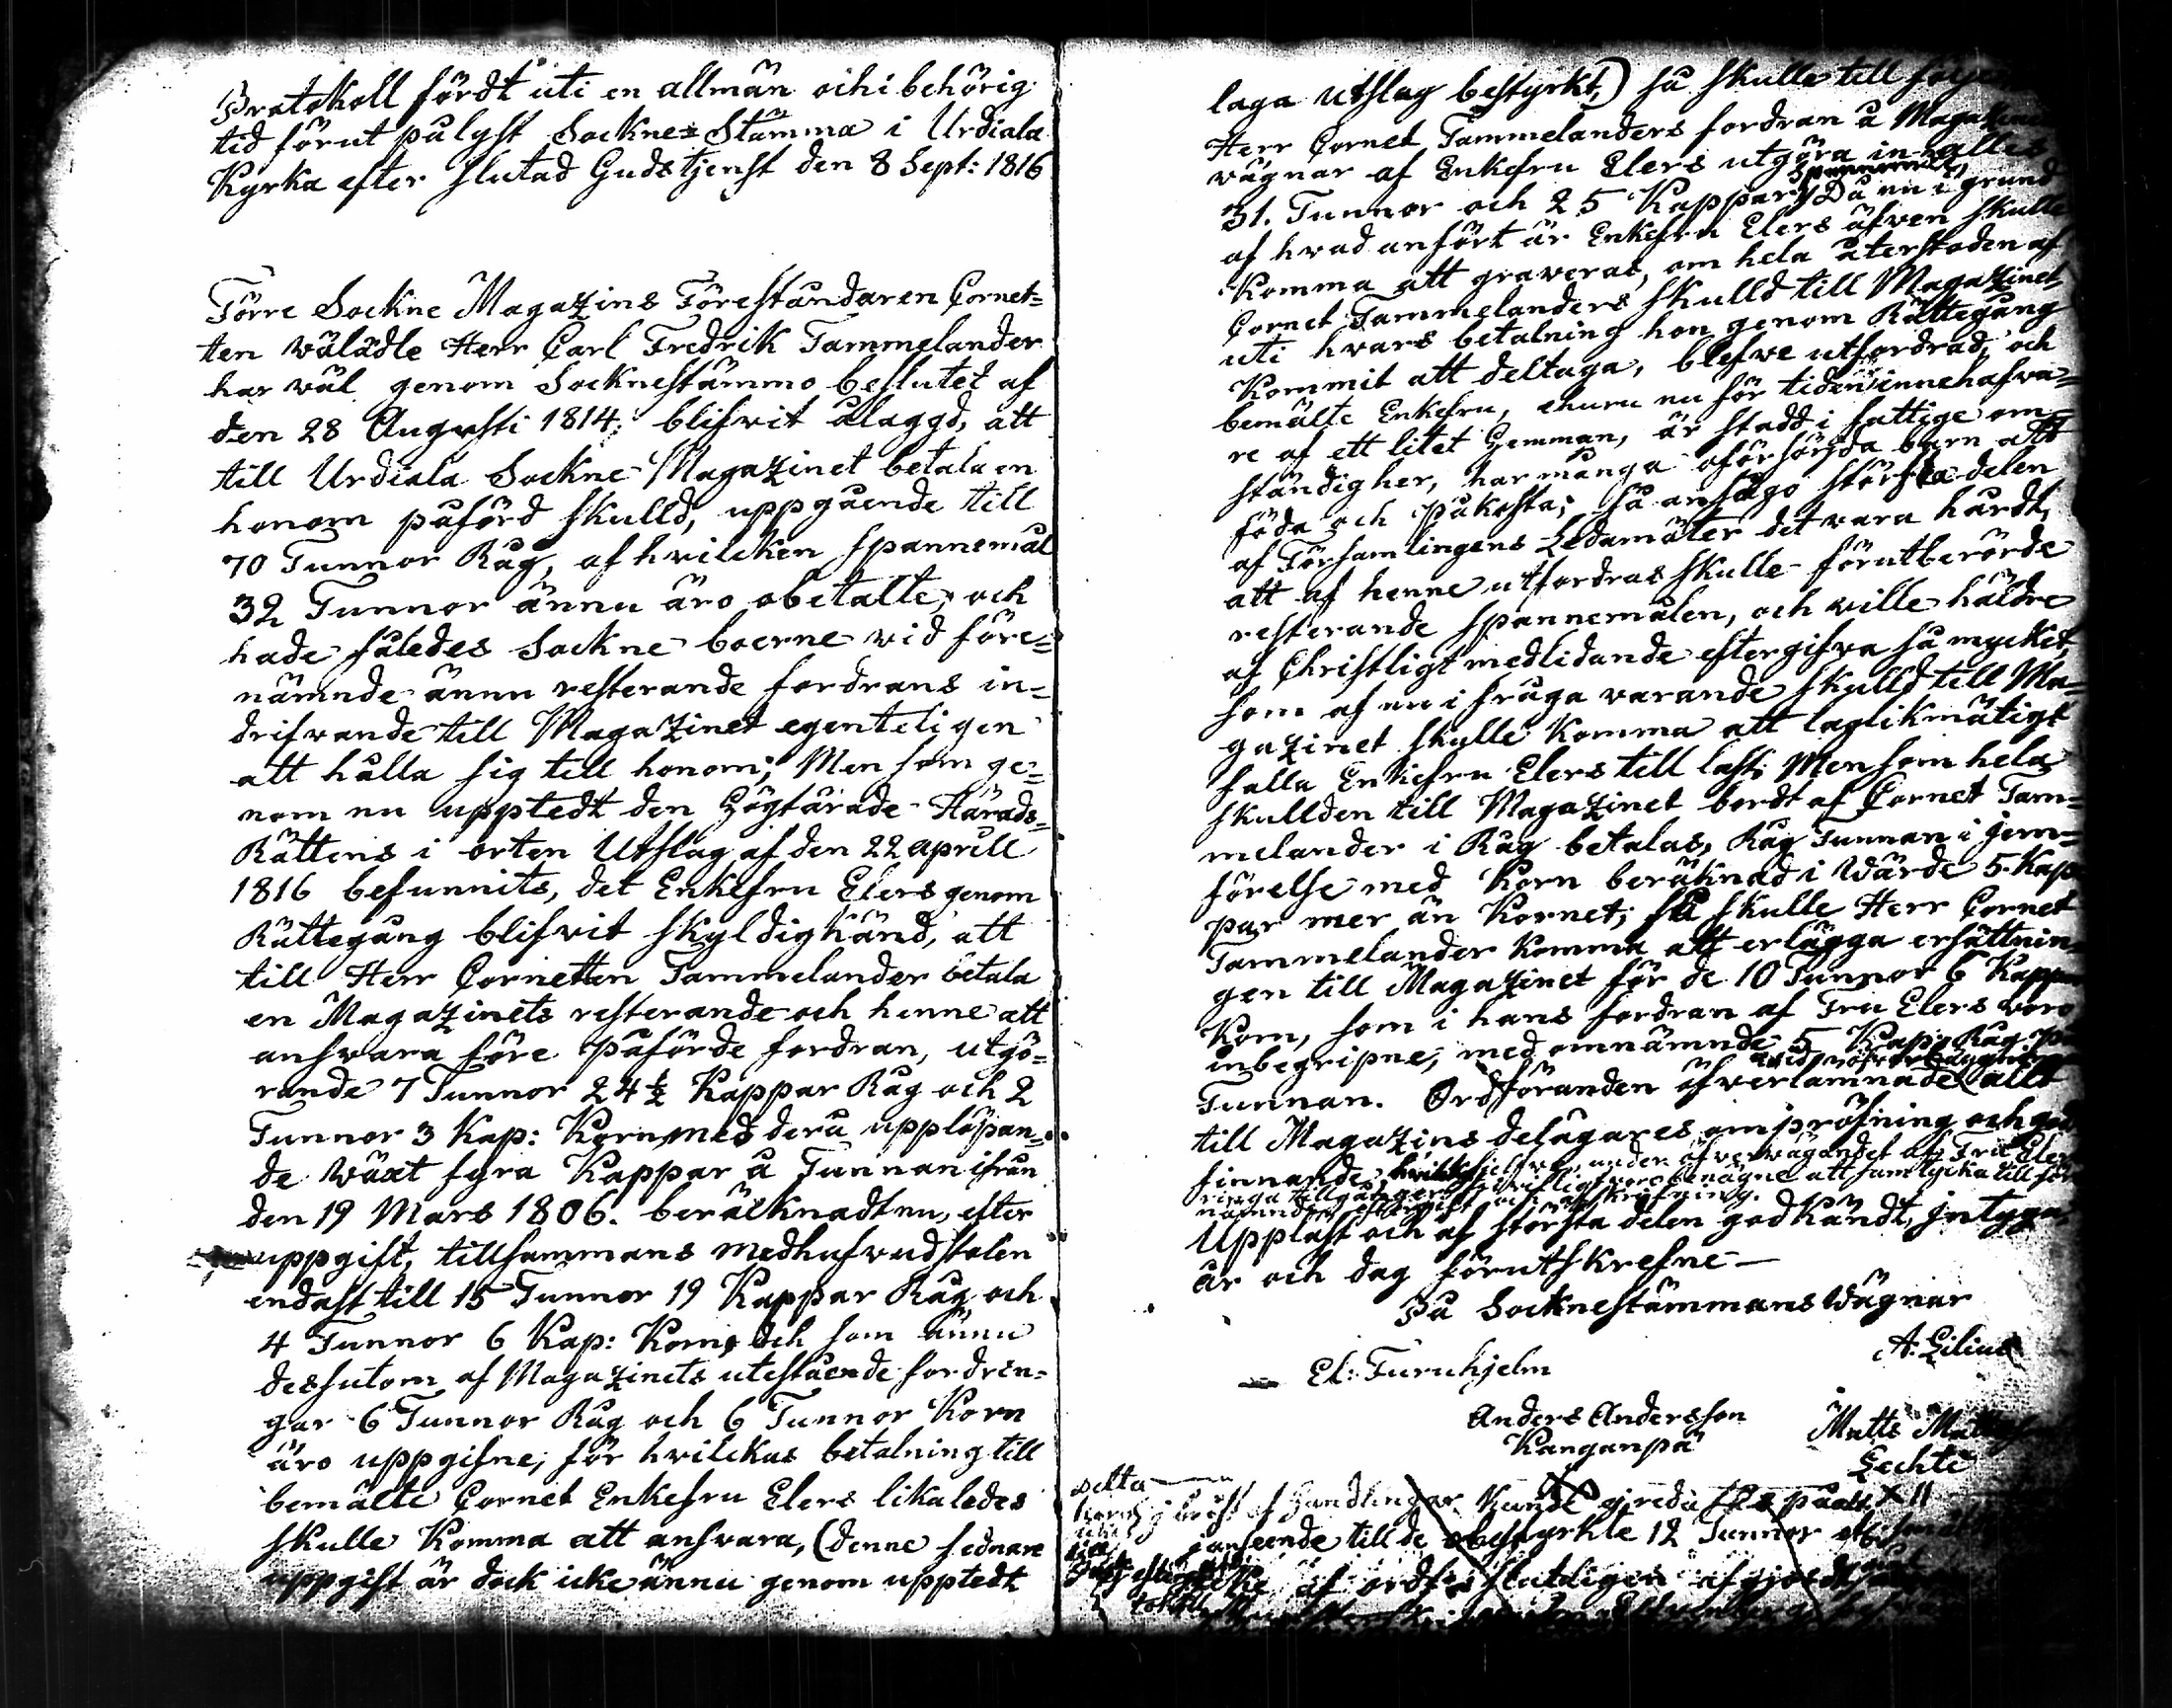 Protokoll fördt uti en allmän och i behörig
tid förut pålyst Sockne=Stämma i Urdiala
Kyrka efter slutad Gudstjenst den 8 Sept: 1816
Förre Sockne Magazins Föreståndaren Cornet=
ten wälädle Herr Carl Fredrik Tammelander
har wäl genom Socknestämmo beslutet af
den 28 Augusti 1814, blifvit ålaggd, att
till Urdiala Sockne Magazinet betala en
honom påförd skulld, uppgående till
70 Tunnor Råg, af hvilcken spannemål
32 Tunnor ännu äro obetallte, och
hade således Sockne boerne vid före=
nämnde ännu resterande fordrans in=
drifvande till Magazinet egenteligen
att hålla sig till honom; Men som ge=
nom nu upptedt den Högtärade Härads=
Rättens i orten Utslag af den 22 aprill
1816 befunnits, det Enkefru Elers genom
Rättegång blifvit skyldigkänd, att
till Herr Cornetten Tammelander betala
en Magazinets resterande och henne att
ansvara före påförde fordran, utgö=
rande 7 Tunnor 24 ½ Kappar Råg och 2
Tunnor 3 Kap: Korn, med derå upplöpan=
de Wäxt fyra Kappar å Tunnan ifrån
den 19 Mars 1806. berälknadt nu, efter
uppgift, tillsammans med hufvudstolen
endast till 15 Tunnor 19 Kappar Råg och
4 Tunnor 6 Kap: Korn, Och som ännu
dessutom af Magazinets utestående fordrin=
gar 6 Tunnor Råg och 6 Tunnor Korn
äro uppgifne, för hvilckas betalning till
bemälte Cornet Enkefru Elers likaledes
skulle Komma att ansvara, (denne sednare
uppgift är dock icke ännu genom upptedt
laga utslag bestyrkt,) så skulle till
Herr Cornet Tammelanders fordran å Magazinets
vägnar af Enkefru Elers utgöra in alles
31. Tunnor och 25 Kappar Spannemål, Då nu i grund
af hvad anfört är Enkefru Elers äfven skulle
Komma att graveras, om hela återstoden af
Cornet Tammelanders skulld till Magazinet
uti hvars betalning hon genom Rättegång
Kommit att deltaga, blefve utfordrad, och
bemälte Enkefru, ehuru nu för tiden innehafva=
re af ett litet Hemman, är stadd i fattige om=
ständigher, har många oförsörgda barn att
föda och påkosta; så ansågo största delen
af Församlingens Ledamöter det vara hårdt,
att af henne utfordras skulle förutberörde
resterande spannemålen, och wille häldre
af Christligt medlidande eftergifva så mycket
som af nu i fråga varande skulld till Ma=
gazinet skulle Komma att laglikmätigt
falla Enkefru Elers till last; Men som hela
skullden till Magazinet bordt af Cornet Tam=
melander i Råg betalas, Råg Tunnan i jem=
förelse med Korn beräknad i Wärde 5. Kap
par mer än Kornet; så skulle Herr Cornet
Tammelander Komma att erlägga ersättnin
gen till Magazinet för de 10 Tunnor 6 Kappar
Korn, som i hans fordran af Fru Elers voro
inbegripne, med omnämnde 5 Kap: Råg på
Tunnan. Ordföranden öfverlämnade allt
till Magazins delägares ompröfning och god
finnande, under öfvervägandet af Fru Elers
ringa tillgångar, benägne att samtycka till för
nämnde eftergift och afskrifning.
Upplast och af största delen godkändt, Intyga,
år och dag förutskrefne—
På Socknestämmans Wägnar
A: Lilius
El: Furuhjelm
Anders Andersson
Kanganpä
Matts
Lechti
detta
Handlingar Kunde
anseende till de obestyrkte 12 Tunnor
af